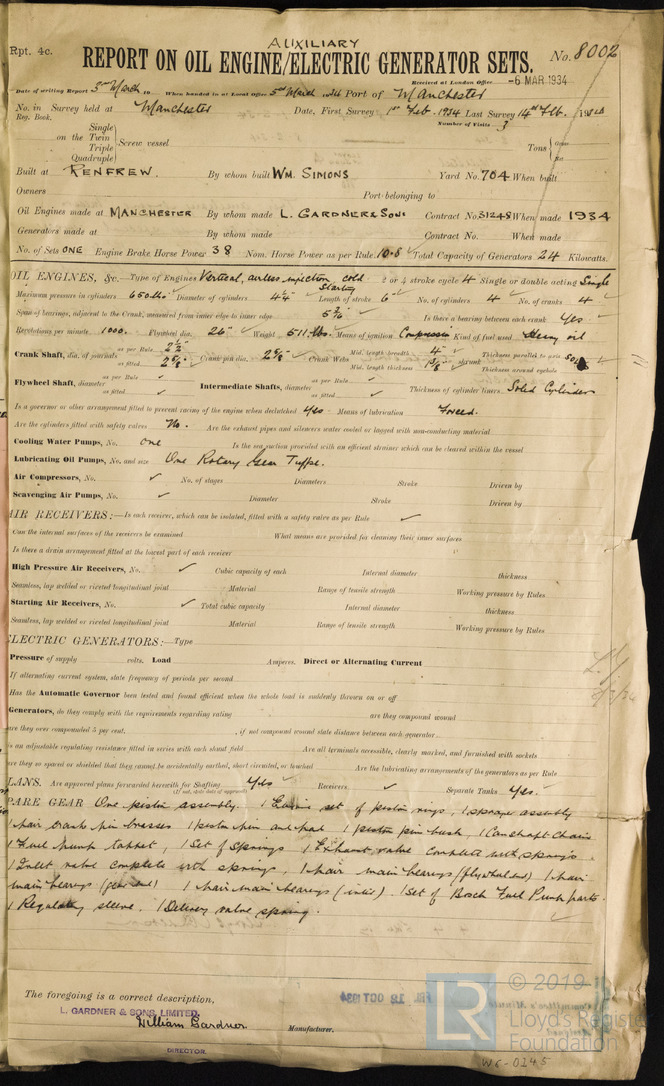 Rpt. 4c.
AUXILIARY
REPORT ON OIL ENGINE/ELECTRIC GENERATOR SETS.
No. 8002
Received at London Office -6 MAR 1934
Date of writing Report 3rd March 19 When handed in at Local Office 5th March 1934 Port of Manchester
No. in Survey held at Manchester Date, First Survey 1st Feb. 1934 Last Survey 14th Feb. 1934
Reg. Book. Number of Visits 3
Single
on the Twin
Triple
Quadruple
Screw vessel
Tons Gross
Net
Built at RENFREW. By whom built WM. SIMONS Yard No. 704 When built
Owners Port belonging to
Oil Engines made at MANCHESTER By whom made L. GARDNER & SONS Contract No. 31248 When made 1934
Generators made at By whom made Contract No. When made
No. of Sets ONE Engine Brake Horse Power 38 Nom. Horse Power as per Rule 10.8 Total Capacity of Generators 24 Kilowatts.
OIL ENGINES, &c.—Type of Engines Vertical, airless injection, cold starting 2 or 4 stroke cycle 4 Single or double acting Single
Maximum pressure in cylinders 650 lbs. Diameter of cylinders 4¼" Length of stroke 6" No. of cylinders 4 No. of cranks 4
Span of bearings, adjacent to the Crank, measured from inner edge to inner edge Is there a bearing between each crank Yes
Revolutions per minute 1000. Flywheel dia. 26" Weight 511 lbs. Means of ignition Compression Kind of fuel used Heavy oil
Crank Shaft, dia. of journals as per Rule 2½" as fitted 2⅝" Crank pin dia. 2⅝" Crank Webs Mid. length breadth 4" Mid. length thickness 1⅛" shrunk Thickness parallel to axis Solid Thickness around eyehole
Flywheel Shaft, diameter as per Rule as fitted Intermediate Shafts, diameter as per Rule as fitted Thickness of cylinder liners Solid Cylinders
Is a governor or other arrangement fitted to prevent racing of the engine when declutched Yes Means of lubrication Forced.
Are the cylinders fitted with safety valves No. Are the exhaust pipes and silencers water cooled or lagged with non-conducting material
Cooling Water Pumps, No. One Is the sea suction provided with an efficient strainer which can be cleared within the vessel
Lubricating Oil Pumps, No. and size One Rotary Gear Type.
Air Compressors, No. No. of stages Diameters Stroke Driven by
Scavenging Air Pumps, No. Diameter Stroke Driven by
AIR RECEIVERS:—Is each receiver, which can be isolated, fitted with a safety valve as per Rule
Can the internal surfaces of the receivers be examined What means are provided for cleaning their inner surfaces
Is there a drain arrangement fitted at the lowest part of each receiver
High Pressure Air Receivers, No. Cubic capacity of each Internal diameter thickness
Seamless, lap welded or riveted longitudinal joint Material Range of tensile strength Working pressure by Rules
Starting Air Receivers, No. Total cubic capacity Internal diameter thickness
Seamless, lap welded or riveted longitudinal joint Material Range of tensile strength Working pressure by Rules
ELECTRIC GENERATORS:—Type
Pressure of supply volts. Load Amperes. Direct or Alternating Current
If alternating current system, state frequency of periods per second
Has the Automatic Governor been tested and found efficient when the whole load is suddenly thrown on or off
Generators, do they comply with the requirements regarding rating are they compound wound
are they over compounded 5 per cent. , if not compound wound state distance between each generator
is an adjustable regulating resistance fitted in series with each shunt field Are all terminals accessible, clearly marked, and furnished with sockets
are they so spaced or shielded that they cannot be accidentally earthed, short circuited, or touched Are the lubricating arrangements of the generators as per Rule
PLANS. Are approved plans forwarded herewith for Shafting Yes Receivers. Separate Tanks Yes.
(If not, state date of approval)
SPARE GEAR One piston assembly. 1 Engine set of piston rings, 1 sprayer assembly
1 pair crank pin brasses 1 piston pin and pad 1 piston pin bush, 1 Camshaft Chain
1 Fuel pump tappet, 1 Set of Springs 1 Exhaust valve complete with springs.
1 Inlet valve complete with springs, 1 pair main bearings (flywheel end) 1 pair
main bearings (gear end) 1 pair main bearings (inter). 1 Set of Bosch Fuel Pump parts.
1 Regulating sleeve. 1 Delivery valve spring.
The foregoing is a correct description,
L. GARDNER & SONS, LIMITED.
William Gardner Manufacturer.
DIRECTOR.
12 OCT 1934
LR
© 2019
Lloyd's Register
Foundation
W6-0145